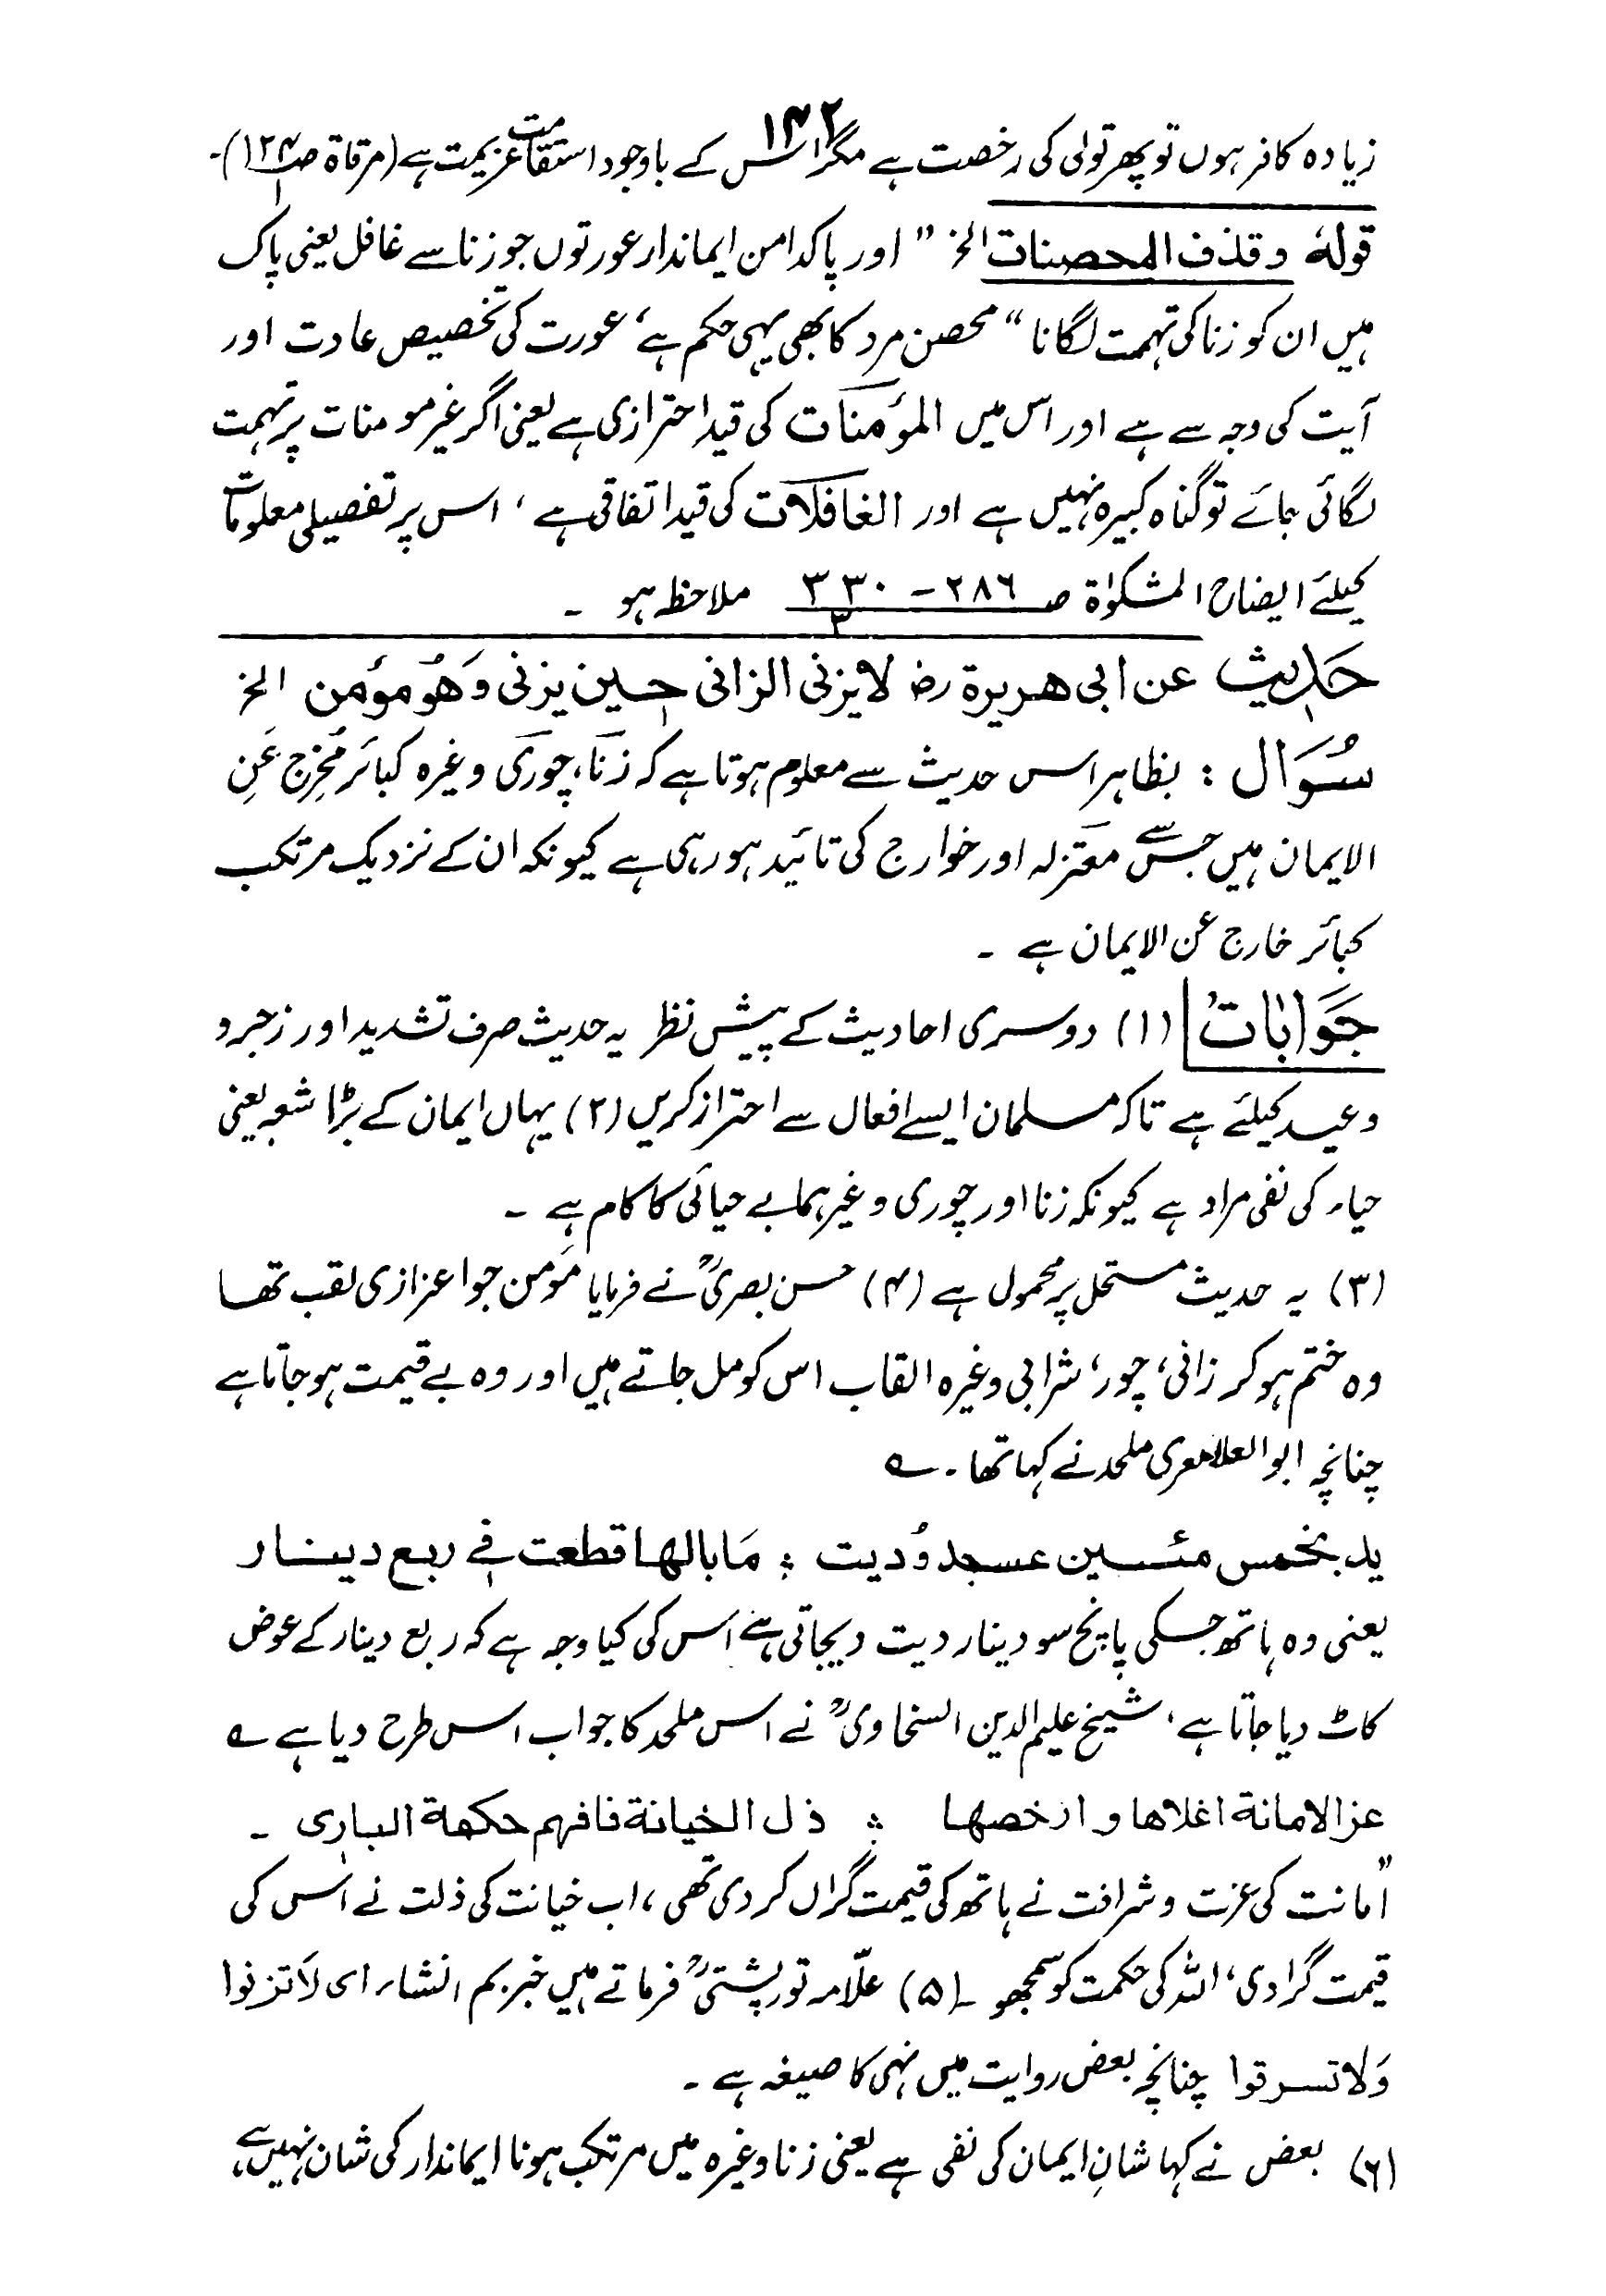 ۱۴۲
زیادہ کافر ہوں تو پھر تولی کی رخصت ہے مگر اس کے باوجود استقامت عزیمت ہے (مرقاۃ ص ۱۲۴/۱)۔
قولہٗ وقذف المحصنات الخ ” اور پاکدامن ایماندار عورتوں جو زنا سے غافل یعنی پاک
ہیں ان کو زنا کی تہمت لگانا “ محصن مرد کا بھی یہی حکم ہے، عورت کی تخصیص عادت اور
آیت کی وجہ سے ہے اور اس میں المؤمنات کی قید احترازی ہے یعنی اگر غیر مومنات پر تہمت
لگائی جائے تو گناہ کبیرہ نہیں ہے اور الغافلات کی قید اتفاقی ہے، اس پر تفصیلی معلومات
کیلئے ایضاح المشکوٰۃ ص ۲۸۶ - ۳۳۰ / ۳ ملاحظہ ہو ۔
حَدِیث عن ابی ھریرۃ رض لا یزنی الزانی حین یزنی وَھُو مؤمن الخ
سُوَال : بظاہر اس حدیث سے معلوم ہوتا ہے کہ زنا، چوری وغیرہ کبائر مُخرِج عَنِ
الایمان ہیں جس سے معتزلہ اور خوارج کی تائید ہو رہی ہے کیونکہ ان کے نزدیک مرتکب
کبائر خارج عن الایمان ہے ۔
جَوَابَات (۱) دوسری احادیث کے پیش نظر یہ حدیث صرف تشدید اور زجر و
وعید کیلئے ہے تاکہ مسلمان ایسے افعال سے احتراز کریں (۲) یہاں ایمان کے بڑا شعبہ یعنی
حیاء کی نفی مراد ہے کیونکہ زنا اور چوری وغیرہما بے حیائی کا کام ہے ۔
(۳) یہ حدیث مستحل پر محمول ہے (۴) حسن بصریؒ نے فرمایا مؤمن جو اعزازی لقب تھا
وہ ختم ہو کر زانی، چور، شرابی وغیرہ القاب اس کو مل جاتے ہیں اور وہ بے قیمت ہو جاتا ہے
چنانچہ ابو العلاء معری ملحد نے کہا تھا ۔ ؎
ید بخمس مئسین عسجد وُدیت ؛ مَا بالھا قطعت فی ربع دینار
یعنی وہ ہاتھ جسکی پانچ سو دینار دیت دیجاتی ہے اس کی کیا وجہ ہے کہ ربع دینار کے عوض
کاٹ دیا جاتا ہے، شیخ علیم الدین السخاویؒ نے اس ملحد کا جواب اس طرح دیا ہے ؎
عز الامانة اغلاھا وارخصھا ؛ ذل الخیانة فافہم حکمة الباری ۔
” امانت کی عزت و شرافت نے ہاتھ کی قیمت گراں کر دی تھی، اب خیانت کی ذلت نے اس کی
قیمت گرادی، اللہ کی حکمت کو سمجھو ۔ (۵) علّامہ تورپشتیؒ فرماتے ہیں خبر بحکم انشاء ای لا تزنوا
وَلا تسرقوا چنانچہ بعض روایت میں نہی کا صیغہ ہے ۔
(۶) بعض نے کہا شانِ ایمان کی نفی ہے یعنی زنا وغیرہ میں مرتکب ہونا ایماندار کی شان نہیں ہے،